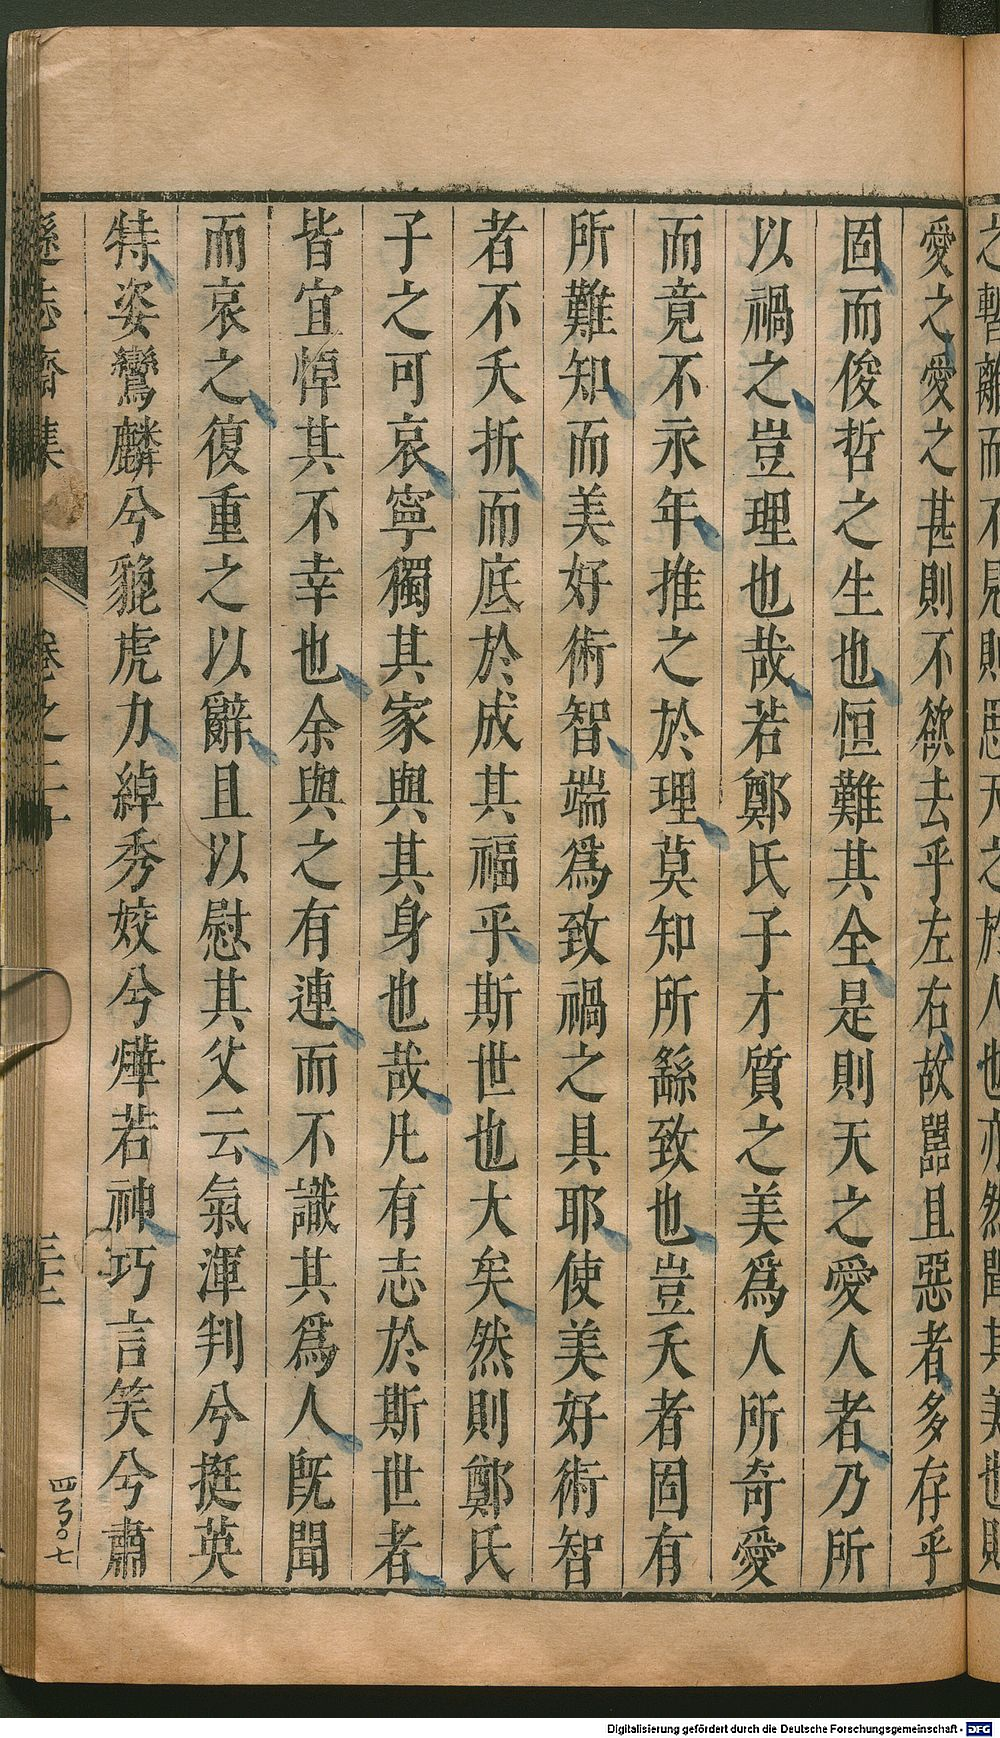 之暫離而不見則思天之於人也亦然聞其美也則
愛之愛之甚則不欲去乎左右故嚚且惡者多存乎
固而俊哲之生也恒難其全是則天之愛人者乃所
以禍之豈理也哉若鄭氏子才質之美爲人所奇愛
而竟不永年推之於理莫知所繇致也豈夭者固有
所難知而美好術智端爲致禍之具耶使美好術智
者不夭折而底於成其福乎斯世也大矣然則鄭氏
子之可哀寧獨其家與其身也哉凡有志於斯世者
皆宜悼其不幸也余與之有連而不識其爲人旣聞
而哀之復重之以辭且以慰其父云氣渾判兮挺英
特姿鸞麟兮貔虎力綽秀姣兮燁若神巧言笑兮肅
遜志齋集 卷之二十 三十三
四号○七
Digitalisierung gefördert durch die Deutsche Forschungsgemeinschaft - DFG